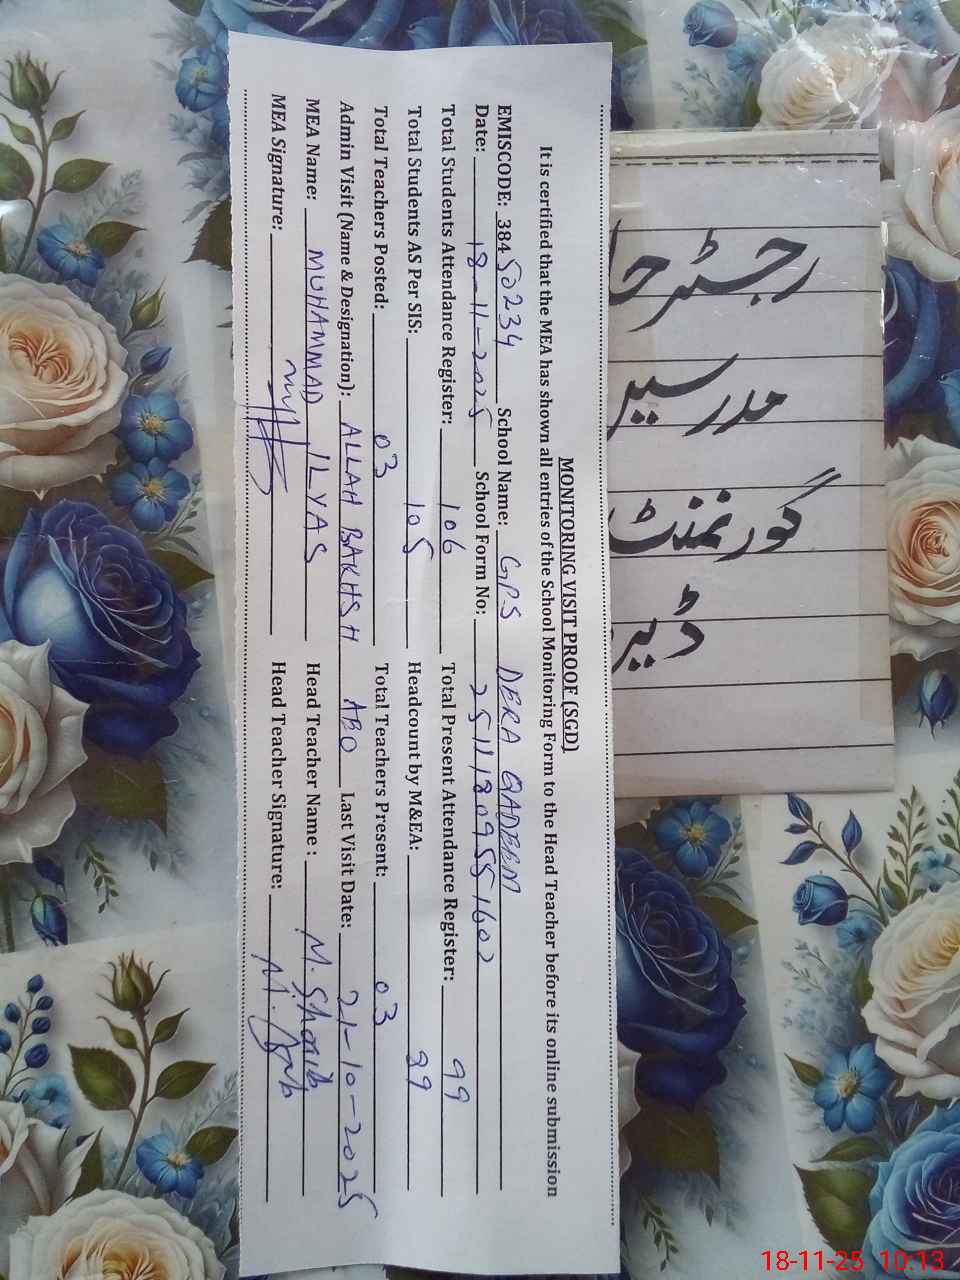 MONITORING VISIT PROOF (SGD)
It is certified that the MEA has shown all entries of the School Monitoring Form to the Head Teacher before its online submission
EMISCODE: 38450234 School Name: GPS DERA QADEEM
Date: 18-11-2025 School Form No: 25111809551602
Total Students Attendance Register: 106 Total Present Attendance Register: 99
Total Students AS Per SIS: 105 Headcount by M&EA: 89
Total Teachers Posted: 03 Total Teachers Present: 03
Admin Visit (Name & Designation): ALLAH BAKHSH AEO Last Visit Date: 21-10-2025
MEA Name: MUHAMMAD ILYAS Head Teacher Name : M. Shoaib
MEA Signature: Head Teacher Signature:
رجسٹر
مدرسین
گورنمنٹ
18-11-25 10:13